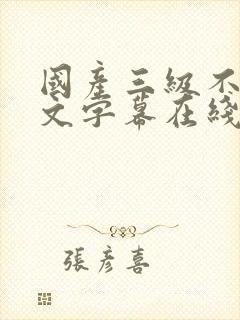 國產三級不
文字幕在綫
張彥喜